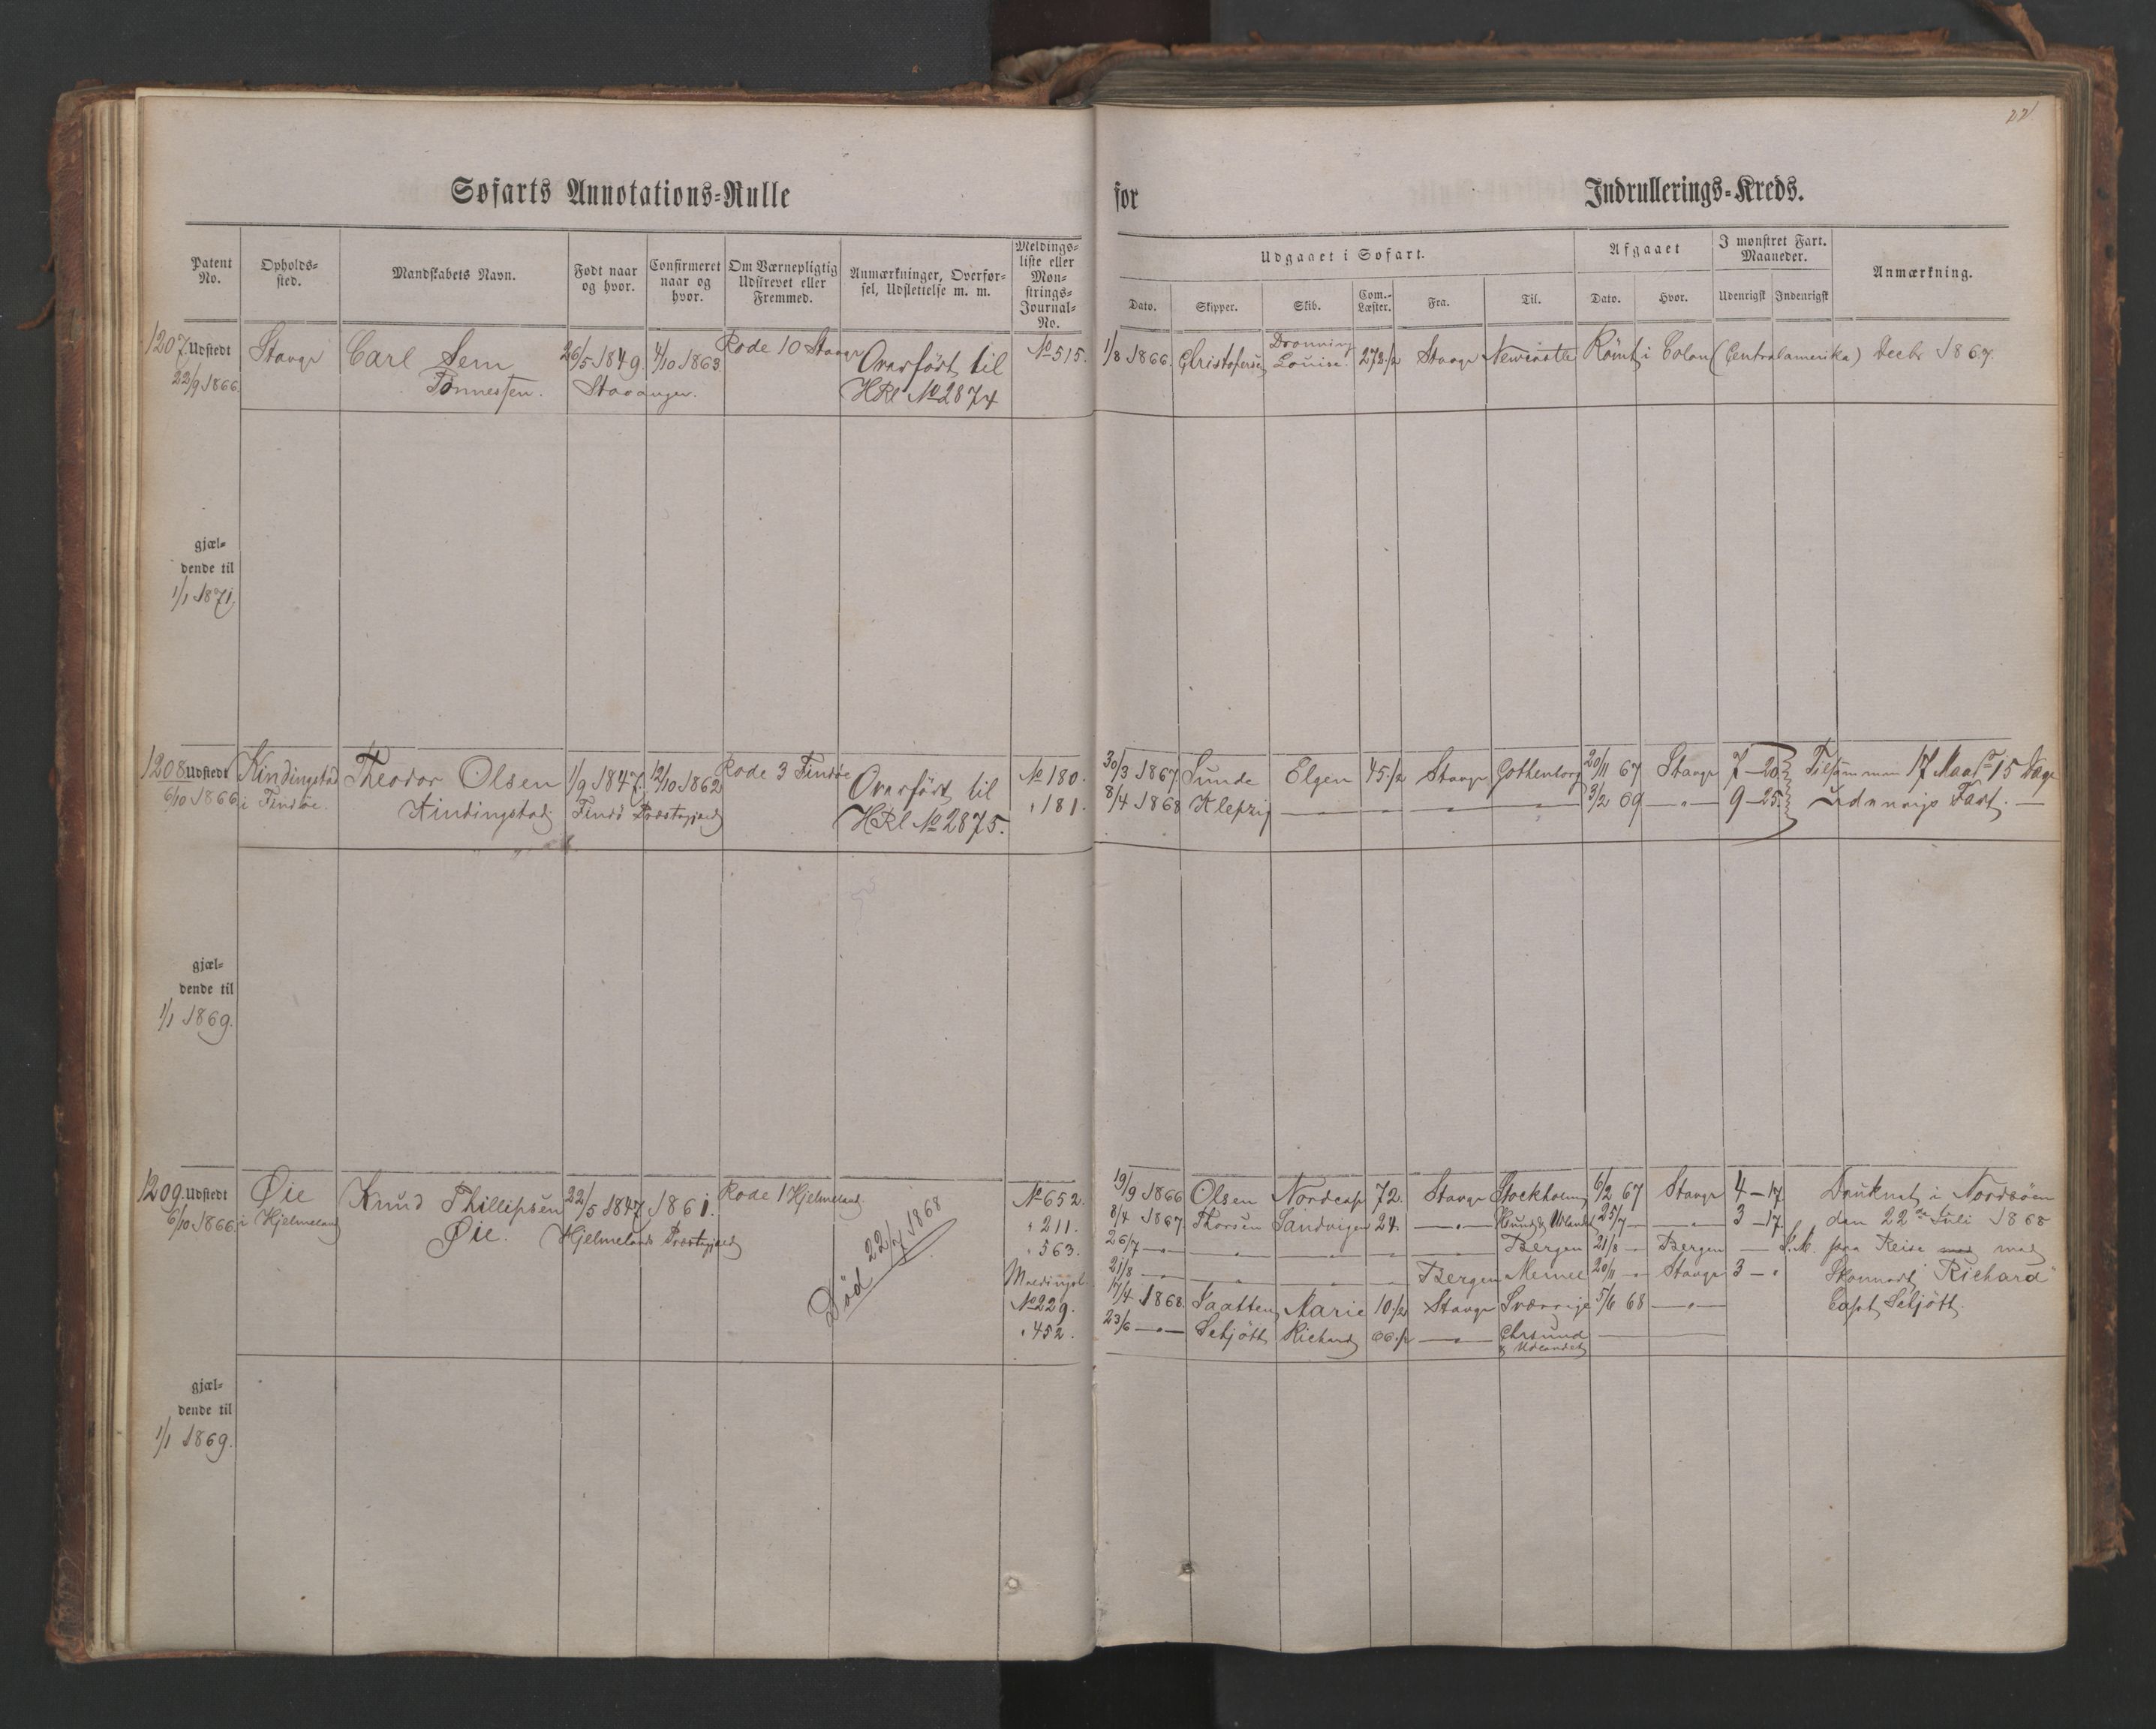 22
Søfarts Annotations=Rulle for Indrullerings=Kreds.
Patent No.
Opholds=sted.
Mandskabets Navn.
Født naar og hvor.
Confirmeret naar og hvor.
Om Værnepligtig Udskrevet eller Fremmed.
Anmærkninger, Overfør=sel, Udslettelse m. m.
Meldings=liste eller Mon=strings=Journal=No.
Udgaaet i Søfart.
Dato.
Skipper.
Skib.
Com.=Læster.
Fra.
Til.
Afgaaet
Dato.
Hvor.
I mønstret Fart. Maaneder.
Udenrigsk
Indenrigsk
Anmærkning.
1207. Udstedt Stavgr Carl Sem 26/5 1849. 4/10 1863. Rode 10 Stavgr Overført til No 515. 1/8 1866. Christofersen Dronning Louise. 273 1/2 Stavgr Newcastle Rømt i Colon (Centralamerika) Decbr 1867.
22/9 1866. Tønnessen. Stavanger. HRl No 2874
gjæl=
dende til
1/1 1871.
1208 Udstedt Kindingstad Theodor Olsen 1/9 1847. 12/10 1862 Rode 3 Findøe Overført til No 180. 30/3 1867 Sunde Elgen 45 1/2 Stavgr Gothenborg 20/11 67 Stavgr 7-20 Tilsammen 17 Maar 15 Dage
6/10 1866. i Findøe. Kindingstad. Findø Præstegjeld HRl No 2875. " 181. 8/4 1868 Klepzig — " — " — " 3/2 69 — " — 9-25 Udenrigs Fart. —
gjæl=
dende til
1/1 1869.
1209. Udstedt Øie Knud Phillipsen 22/5 1847 1861. Rode 1 Hjelmeland. No 652. 19/9 1866 Olsen Nordcap 72. Stavgr Stockholm 6/2 67 Stavgr 4-17 Druknet i Nordsøen
6/10 1866. i Hjelmeland Øie. Hjelmelands Præstegjeld Død 22/7 1868 " 211. 8/4 1867 Thorsen Sandvigen 24. — " — Udlandet 25/7 — — " — 3-17 den 22de Juli 1868
" 563. 26/7 — " — " — Bergen 21/8 — Bergen — paa Reise med
Meldingsl. 21/8 — " — " — Bergen Memel 20/11 — Stavgr 3 — " Skonnert "Richard"
No 229. 17/4 1868. Saatten Marie 10 1/2 Stavgr Sverrige 5/6 68 — " — Capt Schjøtt.
" 452. 23/6 — " — Schjøtt Richard 66 1/2 — " — Chrsund & Udlandet
gjæl=
dende til
1/1 1869.